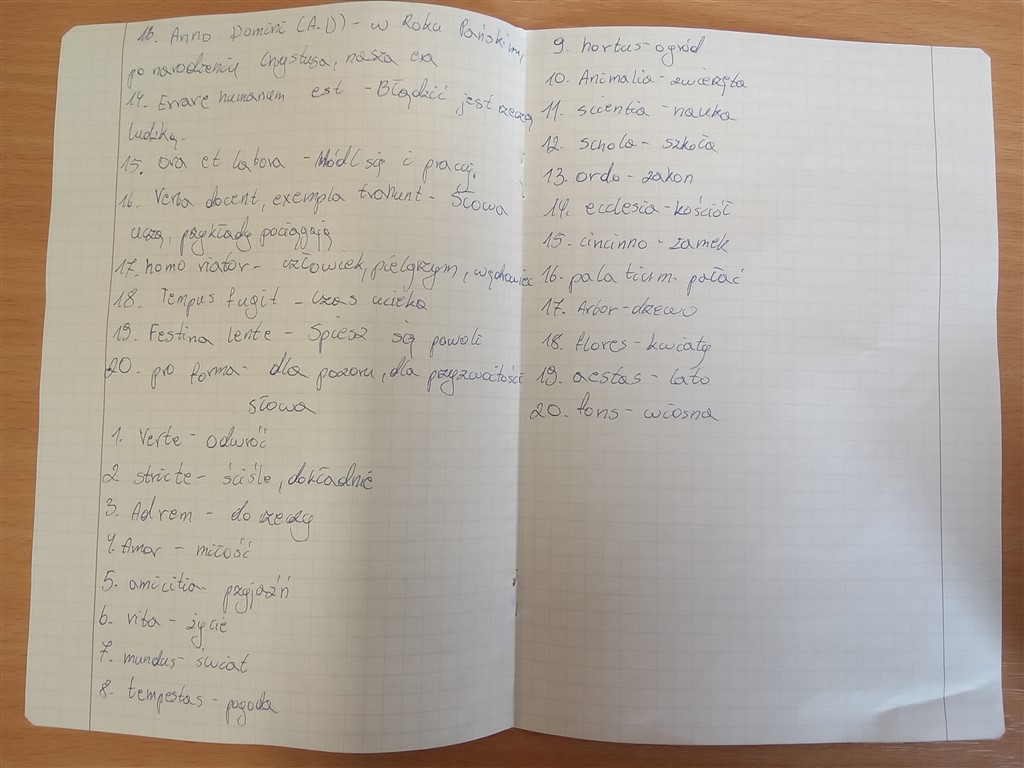 13. Anno Domini (A.D) - w Roku Pańskim,
po narodzeniu Chrystusa, nasza era
14. Errare humanum est - Błądzić jest rzeczą
ludzką.
15. Ora et labora - Módl się i pracuj.
16. Verba docent, exempla trahunt - Słowa
uczą, przykłady pociągają
17. homo viator - człowiek, pielgrzym, wędrowiec
18. Tempus fugit - czas ucieka
19. Festina lente - Spiesz się powoli
20. pro forma - dla pozoru, dla przyzwoitości
słowa
1. Verte - odwróć
2 stricte - ściśle, dokładnie
3. Ad rem - do rzeczy
4. Amor - miłość
5. amicitia - przyjaźń
6. vita - życie
7. mundus - świat
8. tempestas - pogoda
9. hortus - ogród
10. Animalia - zwierzęta
11. scientia - nauka
12. schola - szkoła
13. ordo - zakon
14. ecclesia - kościół
15. cincinno - zamek
16. palatium - pałac
17. Arbor - drzewo
18. flores - kwiaty
19. aestas - lato
20. fons - wiosna